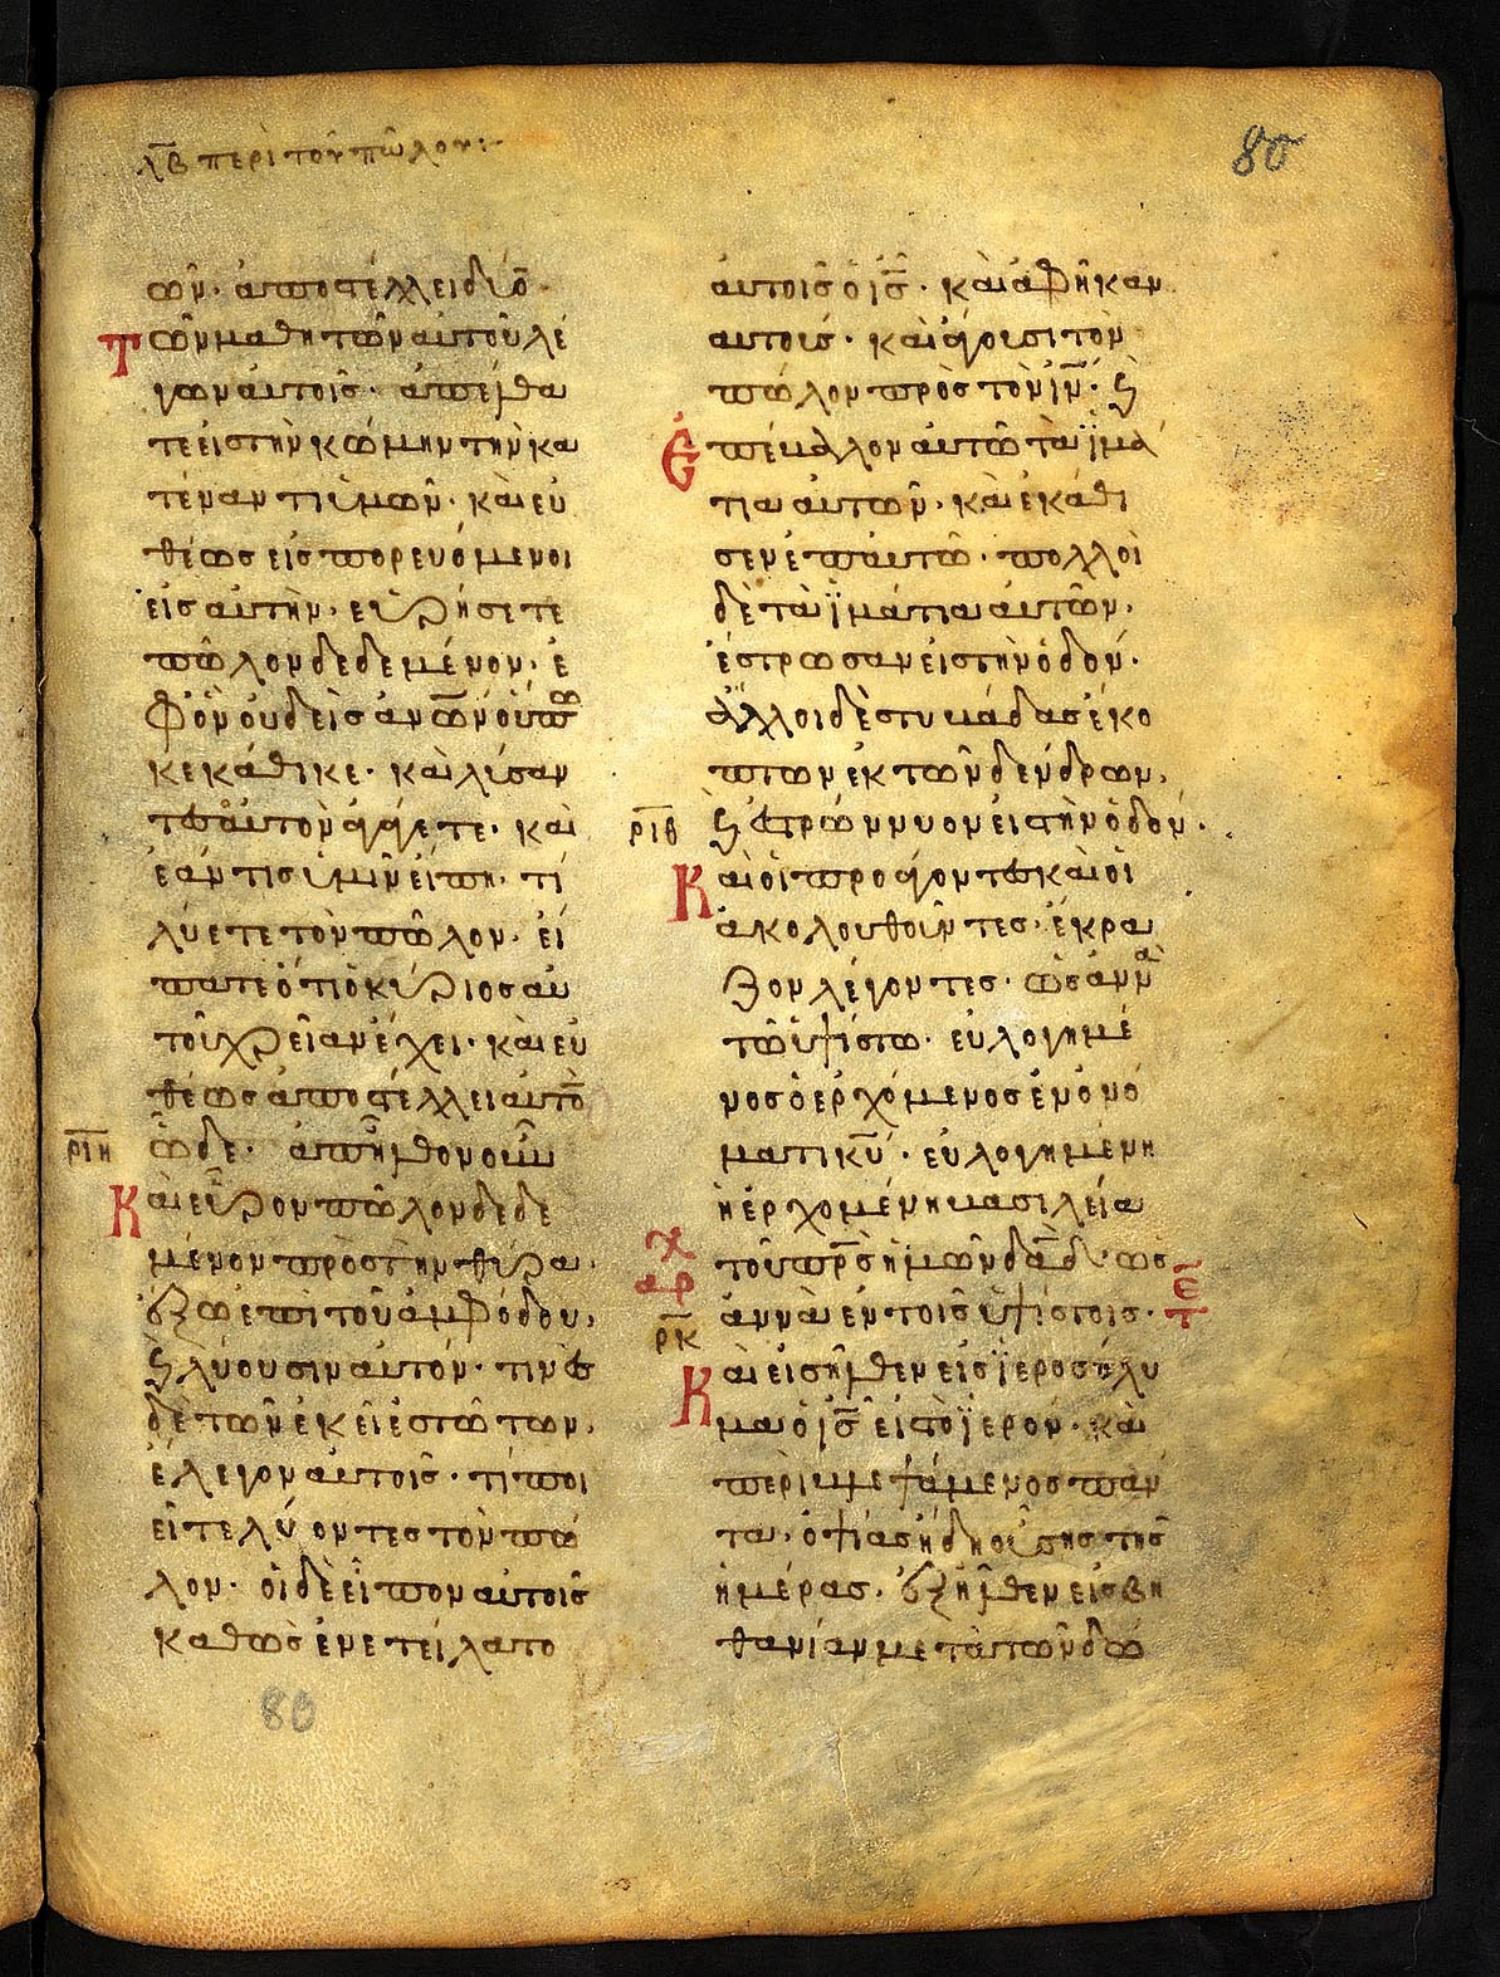 λ̅β̅ περὶ τοῦ πώλου :-
80
ων̑· ἀποστέλλει δύο̅
τῶν μαθητῶν αὐτοῦ λέ
γων αὐτοῖς· ἀπέλθα
τε εἰς τὴν κώμην τὴν κα
τέναντι ὑμῶν· καὶ εὐ
θέως εἰσπορευόμενοι
εἰς αὐτὴν· εὑρήσετε
πῶλον δεδεμένον· ἐ
φ' ὃν οὐδεὶς ἀν̅ω̅ν οὔπω
κεκάθικε· καὶ λύσαν
τες αὐτὸν φέρετε· καὶ
ἐάν τις ὑμῖν εἴπη· τί
λύετε τὸν πῶλον· εἴ
πατε ὅτι ὁ κύριος αὐ
τοῦ χρείαν ἔχει· καὶ εὐ
θέως ἀποστέλλει αὐτὸ̅
ρ̅ι̅η̅ ὧδε· ἀπῆλθον οὖν
Καὶ εὗρον πῶλον δεδε
μένον πρὸς τὴν θύρα·
ἔξω ἐπὶ τοῦ ἀμφόδου,
ϛ̀ λύουσιν αὐτόν· τινὲς
δὲ τῶν ἐκεῖ ἑστώτων,
ἔλεγον αὐτοῖς· τί ποι
εῖτε λύοντες τὸν πῶ
λον· οἱ δὲ εἶπον αὐτοῖς
καθὼς ἐνετείλατο
80
αὐτοῖς ὁ ι̅ς̅· καὶ ἀφῆκαν
αὐτούς· καὶ φέρουσι τὸν
πῶλον πρὸς τὸν ι̅ν̅· ϛ̀
Ἐπέβαλον αὐτῶ τὰ ϊμά
τια αὐτῶν· καὶ ἐκάθι
σεν ἐπ' αὐτῶ· πολλοὶ
δὲ τὰ ϊμάτια αὐτῶν,
ἔστρωσαν εἰς τὴν ὁδόν·
ἄλλοι δὲ στυβάδας ἔκο
πτων ἐκ τῶν δένδρων,
ρ̅ι̅θ̅ ϛ̀ ἐστρώννυον εἰς τὴν ὁδόν·
Καὶ οἱ προάγοντες καὶ οἱ
ἀκολουθοῦντες· ἔκρα
ζον λέγοντες· ὡσαννὰ
τῶ ὑψίστω· εὐλογημέ
νος ὁ ἐρχόμενος ἐν ὀνό
ματι κ̅υ̅· εὐλογημένη
ἡ ἐρχομένη βασιλεία
τοῦ π̅ρ̅ς̅ ἡμῶν δ̅α̅δ̅· ὡσ
αρχ
ἀννὰ ἐν τοῖς ὑψίστοις· τε̅
ρ̅κ̅
Καὶ εἰσῆλθεν εἰς ϊεροσόλυ
μα ὁ ι̅ς̅ εἰς τὸ ϊερόν· καὶ
περιβλεψάμενος πάν
τα, ὀψίας ἤδη οὔσης τῆς
ἡμέρας, ἐξῆλθεν εἰς βη
θανίαν μετὰ τῶν δώ